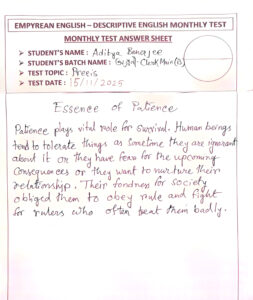 EMPYREAN ENGLISH – DESCRIPTIVE ENGLISH MONTHLY TEST
MONTHLY TEST ANSWER SHEET
➤ STUDENT'S NAME : Aditya Banerjee
➤ STUDENT'S BATCH NAME : Clerk Main (B)
➤ TEST TOPIC : Precis
➤ TEST DATE : 15/11/2025
Essence of Patience
Patience plays vital role for survival. Human beings
tend to tolerate things as sometime they are ignorant
about it or they have fear for the upcoming
Consequences or they want to nurture their
relationship. Their fondness for society
obliged them to obey rule and fight
for rulers who often treat them badly.